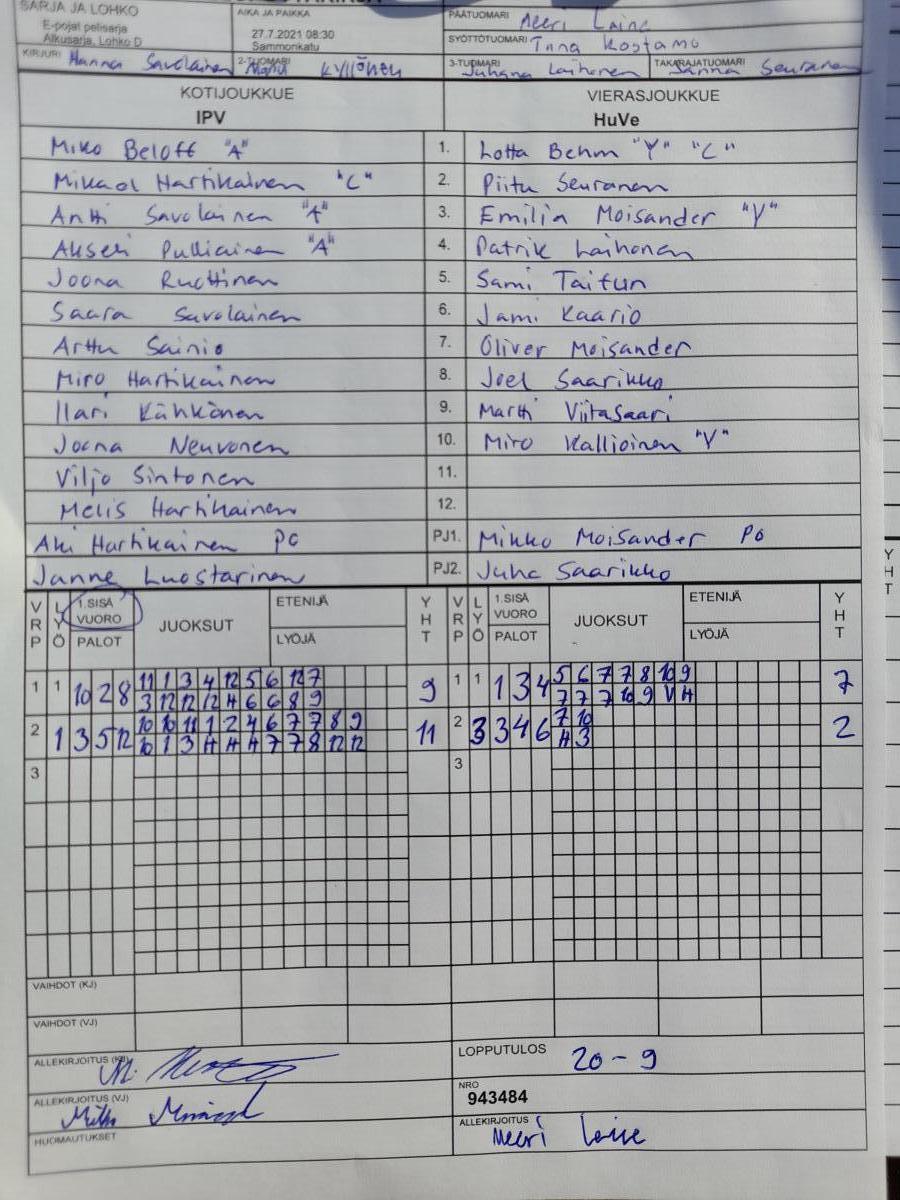 SARJA JA LOHKO
E-pojat pelisarja
Alkusarja, Lohko D
AIKA JA PAIKKA
27.7.2021 08:30
Sammonkatu
PÄÄTUOMARI Meeri Laine
SYÖTTÖTUOMARI Tiina Kostamo
KIRJURI Hanna Savolainen
2-TUOMARI Kyllönen
3-TUOMARI Juhana Laihonen
TAKARAJATUOMARI Sanna Seuranen
KOTIJOUKKUE
IPV
VIERASJOUKKUE
HuVe
Miko Beloff "A" 1. Lotta Behm "Y" "C"
Mikael Hartikainen "C" 2. Piitu Seuranen
Antti Savolainen "A" 3. Emilia Moisander "V"
Akseli Pulliainen "A" 4. Patrik Laihonen
Joona Ruottinen 5. Sami Taitun
Saara Savolainen 6. Jami Kaario
Arttu Sainio 7. Oliver Moisander
Miro Hartikainen 8. Joel Saarikko
Ilari Kähkönen 9. Martti Viitasaari
Joona Neuvonen 10. Miro Kallioinen "V"
Viljo Sintonen 11.
Melis Hartikainen 12.
Aki Hartikainen PO PJ1. Mikko Moisander PO
Janne Luostarinen PJ2. Juha Saarikko
VRP LYÖ 1.SISÄ VUORO PALOT JUOKSUT ETENIJÄ LYÖJÄ YHT VRP LYÖ 1.SISÄ VUORO PALOT JUOKSUT ETENIJÄ LYÖJÄ YHT
1 1 10 2 8 11 1 3 4 12 5 6 12 7 9 1 1 1 3 4 5 6 7 7 8 10 9 7
3 12 12 12 4 6 6 8 9 7 7 7 10 9 V H
2 1 3 5 12 10 10 11 1 2 4 6 7 7 8 9 11 2 3 3 4 6 7 10 2
10 1 3 H H H 7 7 8 12 12 H 3
3 3
VAIHDOT (KJ)
VAIHDOT (VJ)
ALLEKIRJOITUS (KJ)
LOPPUTULOS 20 - 9
ALLEKIRJOITUS (VJ)
NRO
943484
HUOMAUTUKSET
ALLEKIRJOITUS Meeri Laine
YHT